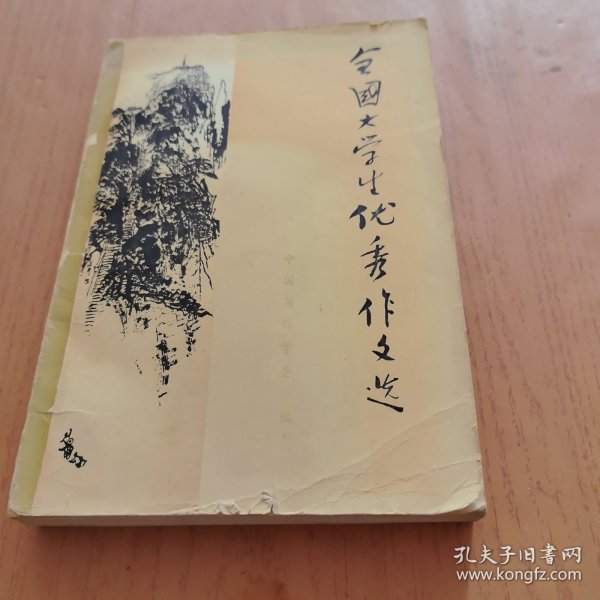 全國大学生优秀作文选
中国写作学会 编
孔夫子旧書网
www.kongfz.com